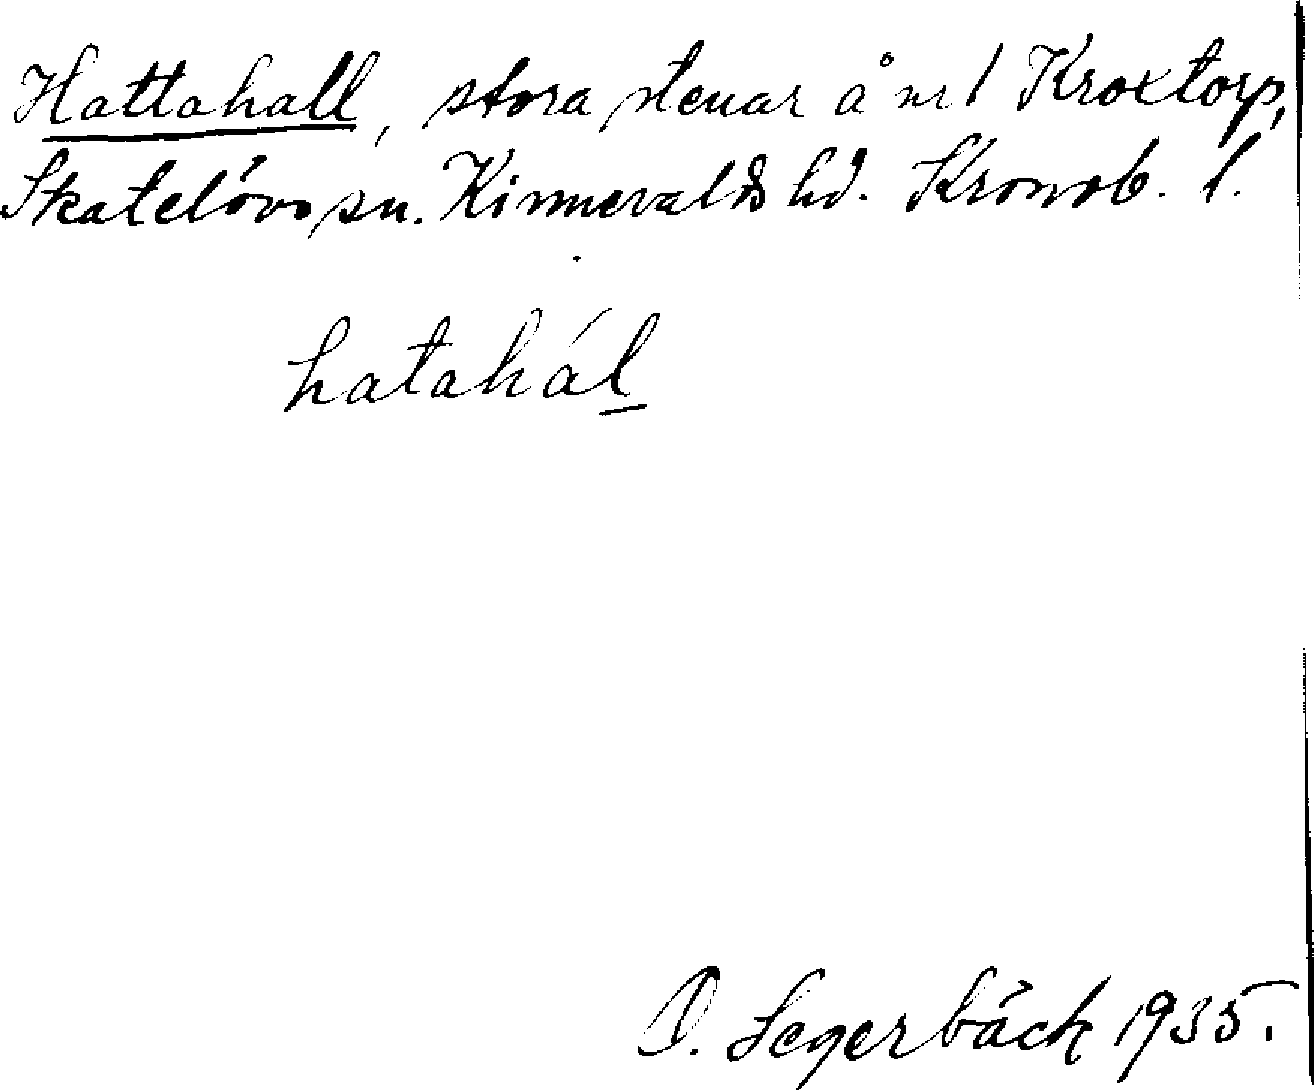 Hattahall, stora stenar å nr 1 Kroxtorp,
Skatelövs sn. Kinnevalds hd. Kronob. l.
hatahál
D. Segerbäck 1935.